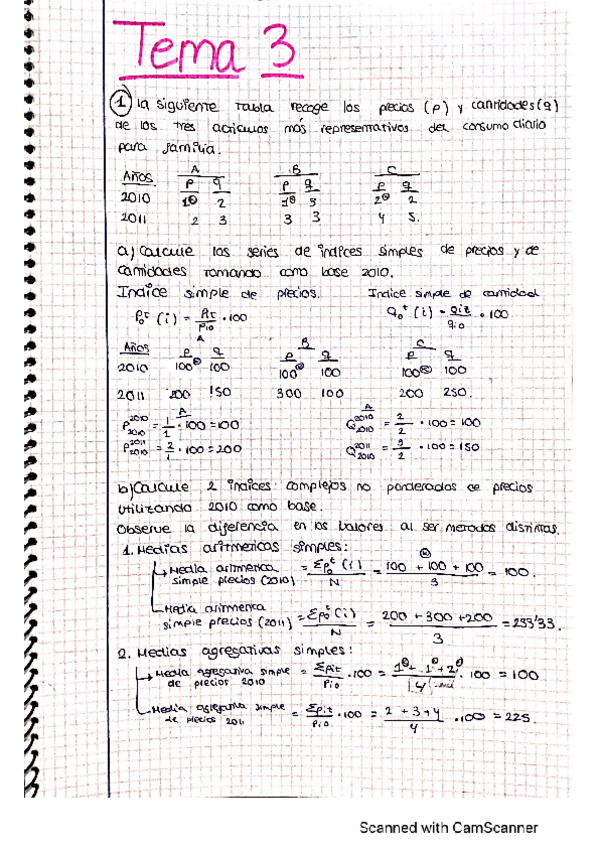 Tema 3
① la siguiente tabla recoge los precios (p) y cantidades (q)
de los tres artículos más representativos del consumo diario
para familia.
Años A B C
p q p q p q
2010 1 2 1 3 2 2
2011 2 3 3 3 4 5.
a) Calcule las series de índices simples de precios y de
cantidades tomando como base 2010.
Indice simple de precios. Indice simple de cantidad
P₀ᵗ (i) = Pit/Pio · 100 Q₀ᵗ (i) = qit/qio · 100
Años A B C
p q p q p q
2010 100 100 100 100 100 100
2011 200 150 300 100 200 250.
A A
P 2010 2010 = 1/1 · 100 = 100 Q 2010 2010 = 2/2 · 100 = 100
P 2011 2010 = 2/1 · 100 = 200 Q 2011 2010 = 3/2 · 100 = 150
b) Calcule 2 índices complejos no ponderados de precios
utilizando 2010 como base.
Observe la diferencia en los valores al ser metodos distintos.
1. Medias aritmeticas simples:
Media aritmetica simple precios (2010) = ΣP₀ᵗ (i)/N = 100 + 100 + 100/3 = 100.
Media aritmetica simple precios (2011) = ΣP₀ᵗ (i)/N = 200 + 300 + 200/3 = 233'33.
2. Medias agregativas simples:
Media agregativa simple de precios 2010 = ΣPit/Pio · 100 = 1 + 1 + 2/4 · 100 = 100
Media agregativa simple de precios 2011 = ΣPit/Pio · 100 = 2 + 3 + 4/4 · 100 = 225.
Scanned with CamScanner